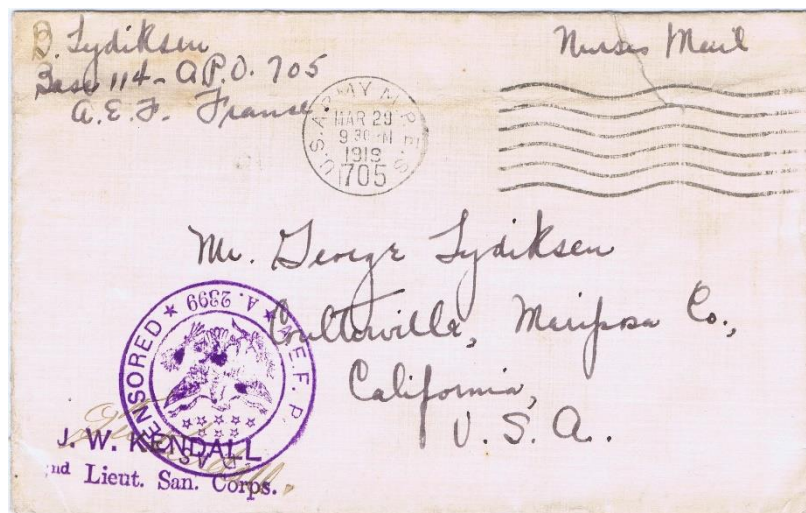 D. Lydiksen
Base 114 - A.P.O. 705
A.E.F. France
Nurses Mail
U.S. ARMY M.P.E.S.
MAR 29
9 30
1919
705
Mr. George Lydiksen
Coulterville, Mariposa Co.,
California,
U.S.A.
A.E.F. PASSED AS CENSORED
A. 2399
J. W. KENDALL
2nd Lieut. San. Corps.